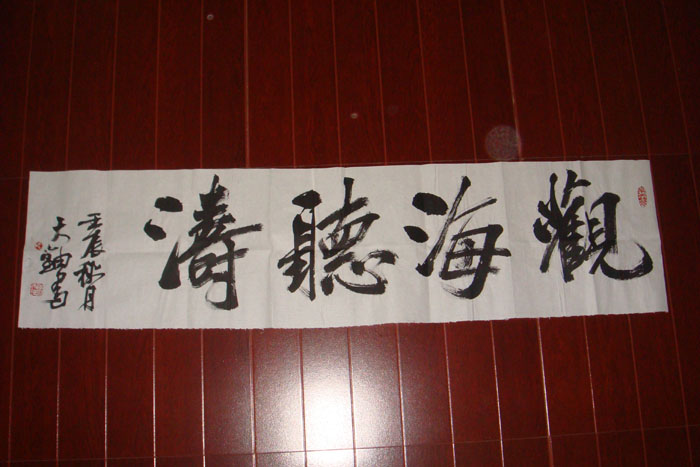 觀海聽濤
壬辰秋月
天 書